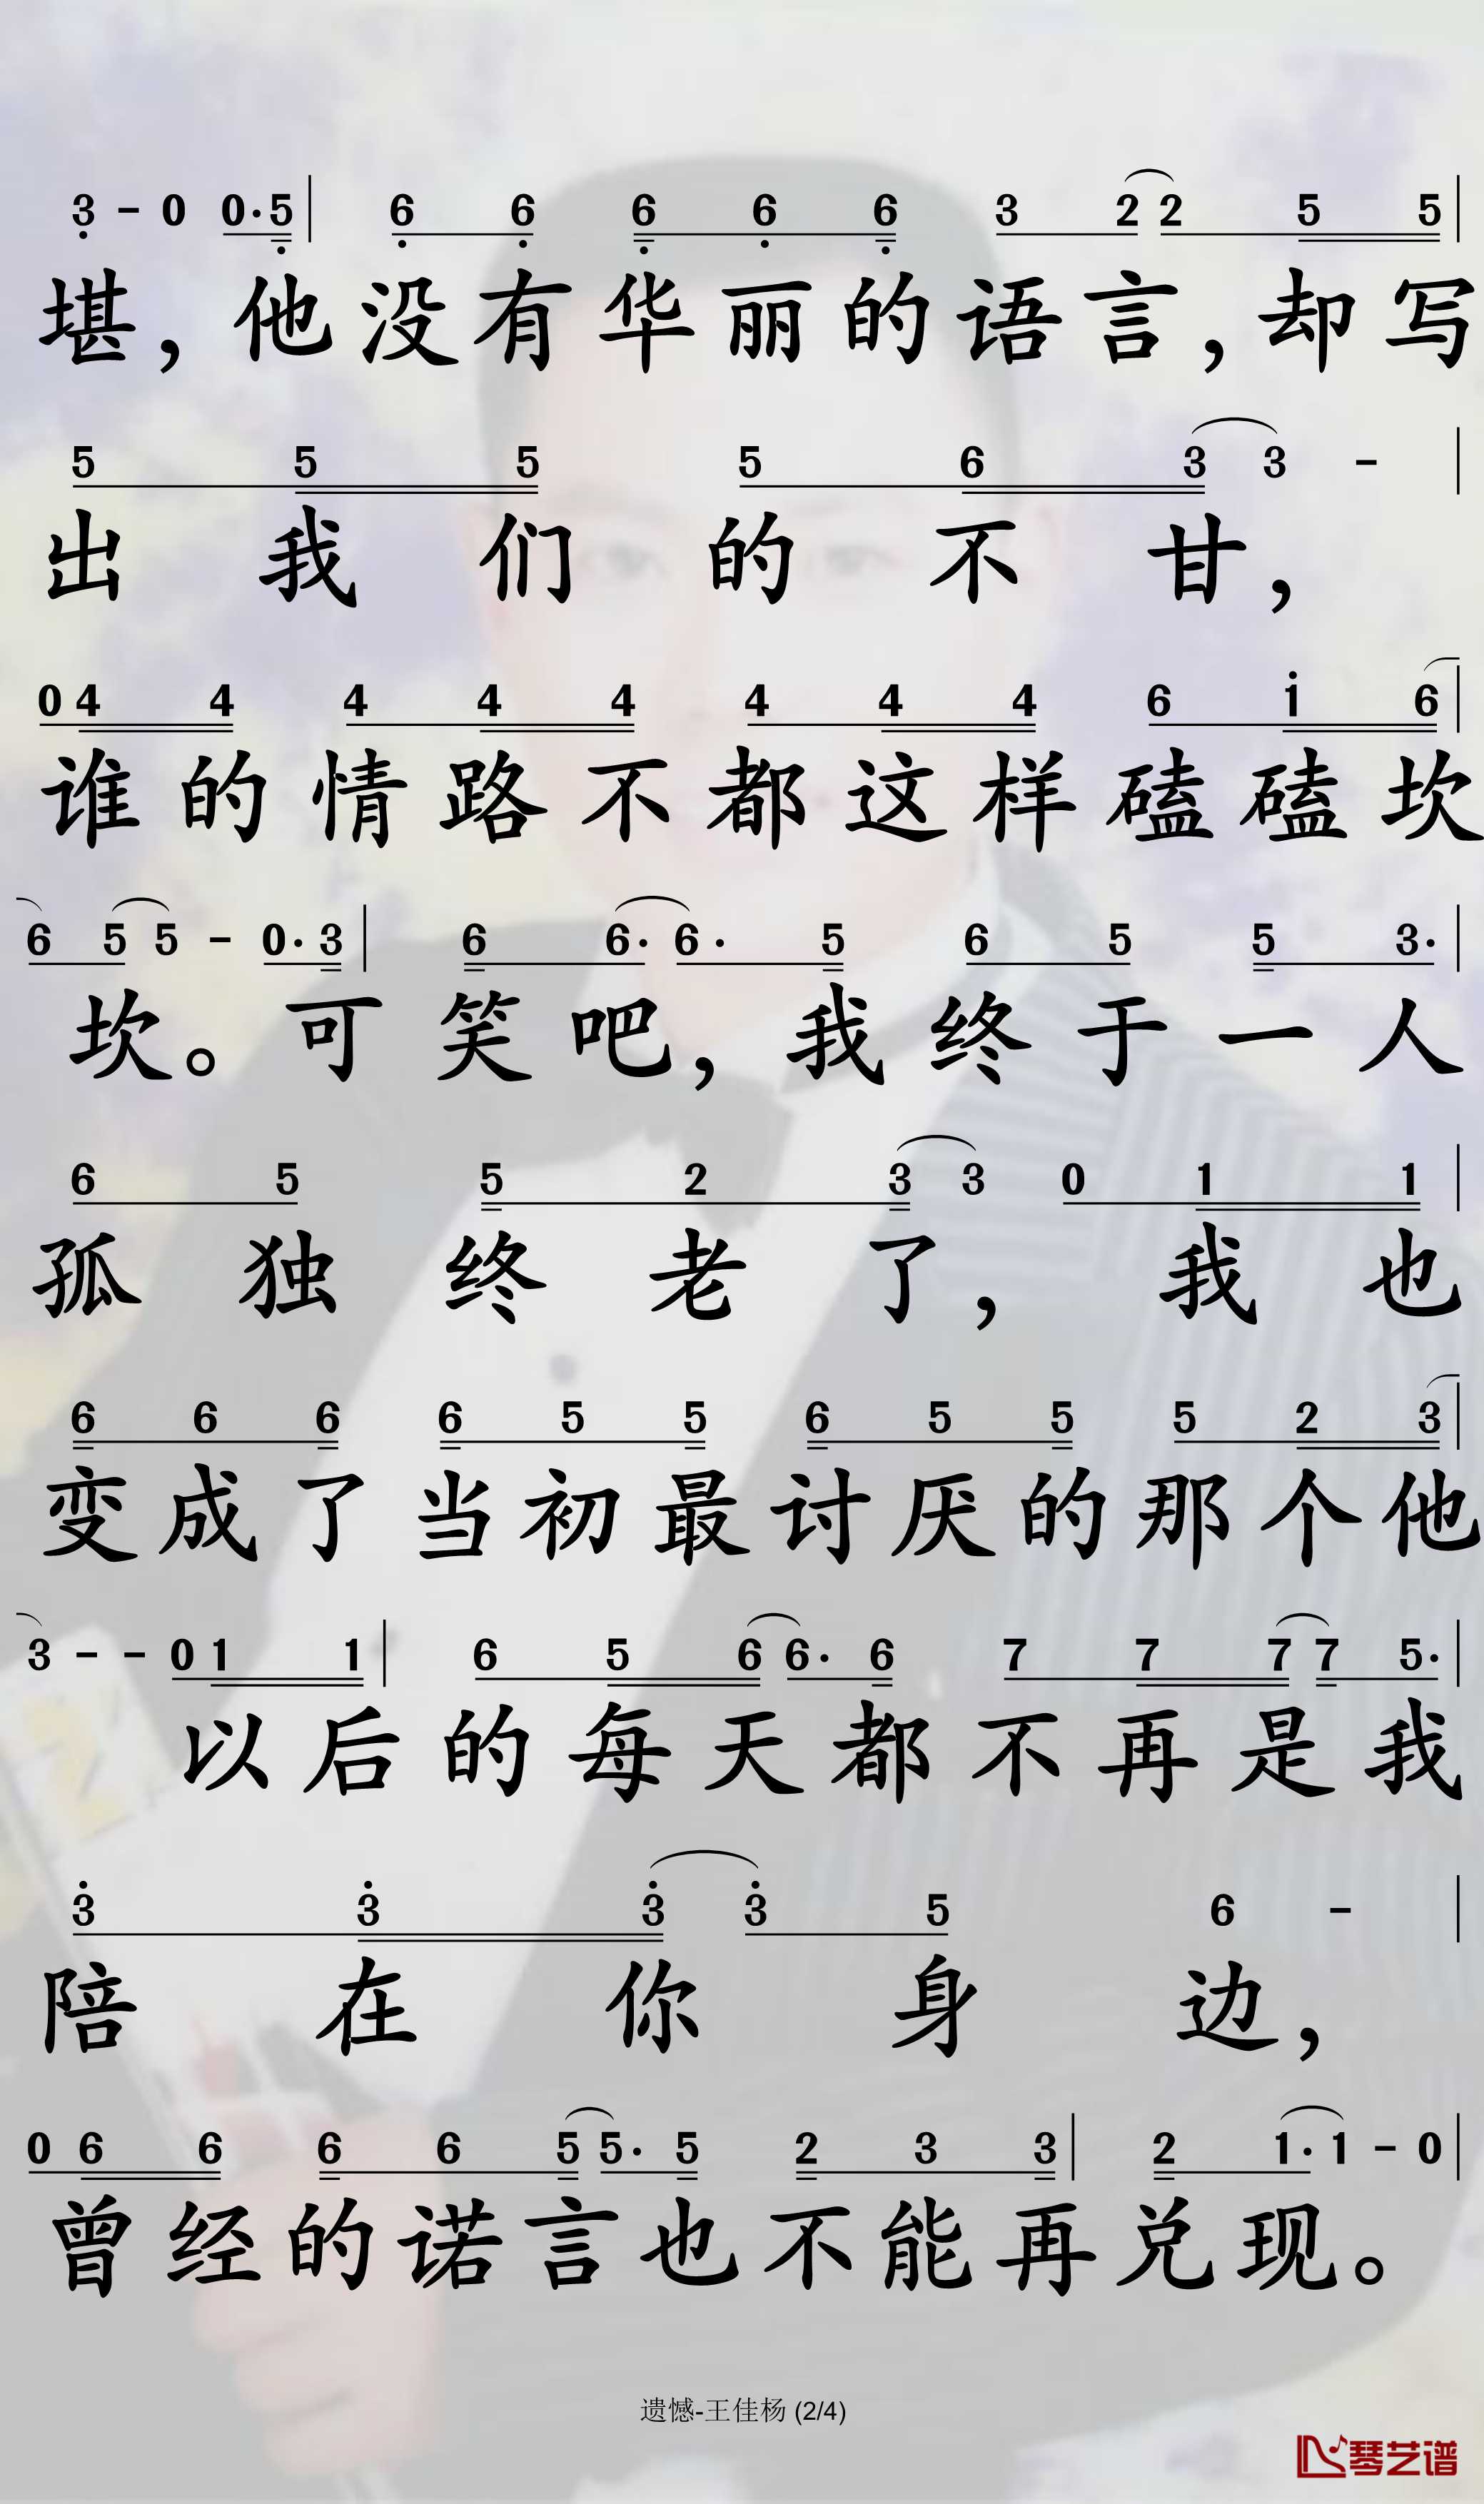 3 - 0 0·5 | 6 6 6 6 6 3 2 2 5 5 |
堪，他没有华丽的语言，却写
5 5 5 5 6 3 3 - |
出我们的不甘，
0 4 4 4 4 4 4 4 4 6 1 6 |
谁的情路不都这样磕磕坎
6 5 5 - 0·3 | 6 6· 6· 5 6 5 5 3· |
坎。可笑吧，我终于一人
6 5 5 2 3 3 0 1 1 |
孤独终老了，我也
6 6 6 6 5 5 6 5 5 5 2 3 |
变成了当初最讨厌的那个他
3 - - 0 1 1 | 6 5 6 6· 6 7 7 7 7 5· |
以后的每天都不再是我
3 3 3 3 5 6 - |
陪在你身边，
0 6 6 6 6 5 5· 5 2 3 3 | 2 1· 1 - 0 |
曾经的诺言也不能再兑现。
遗憾-王佳杨 (2/4)
琴艺谱